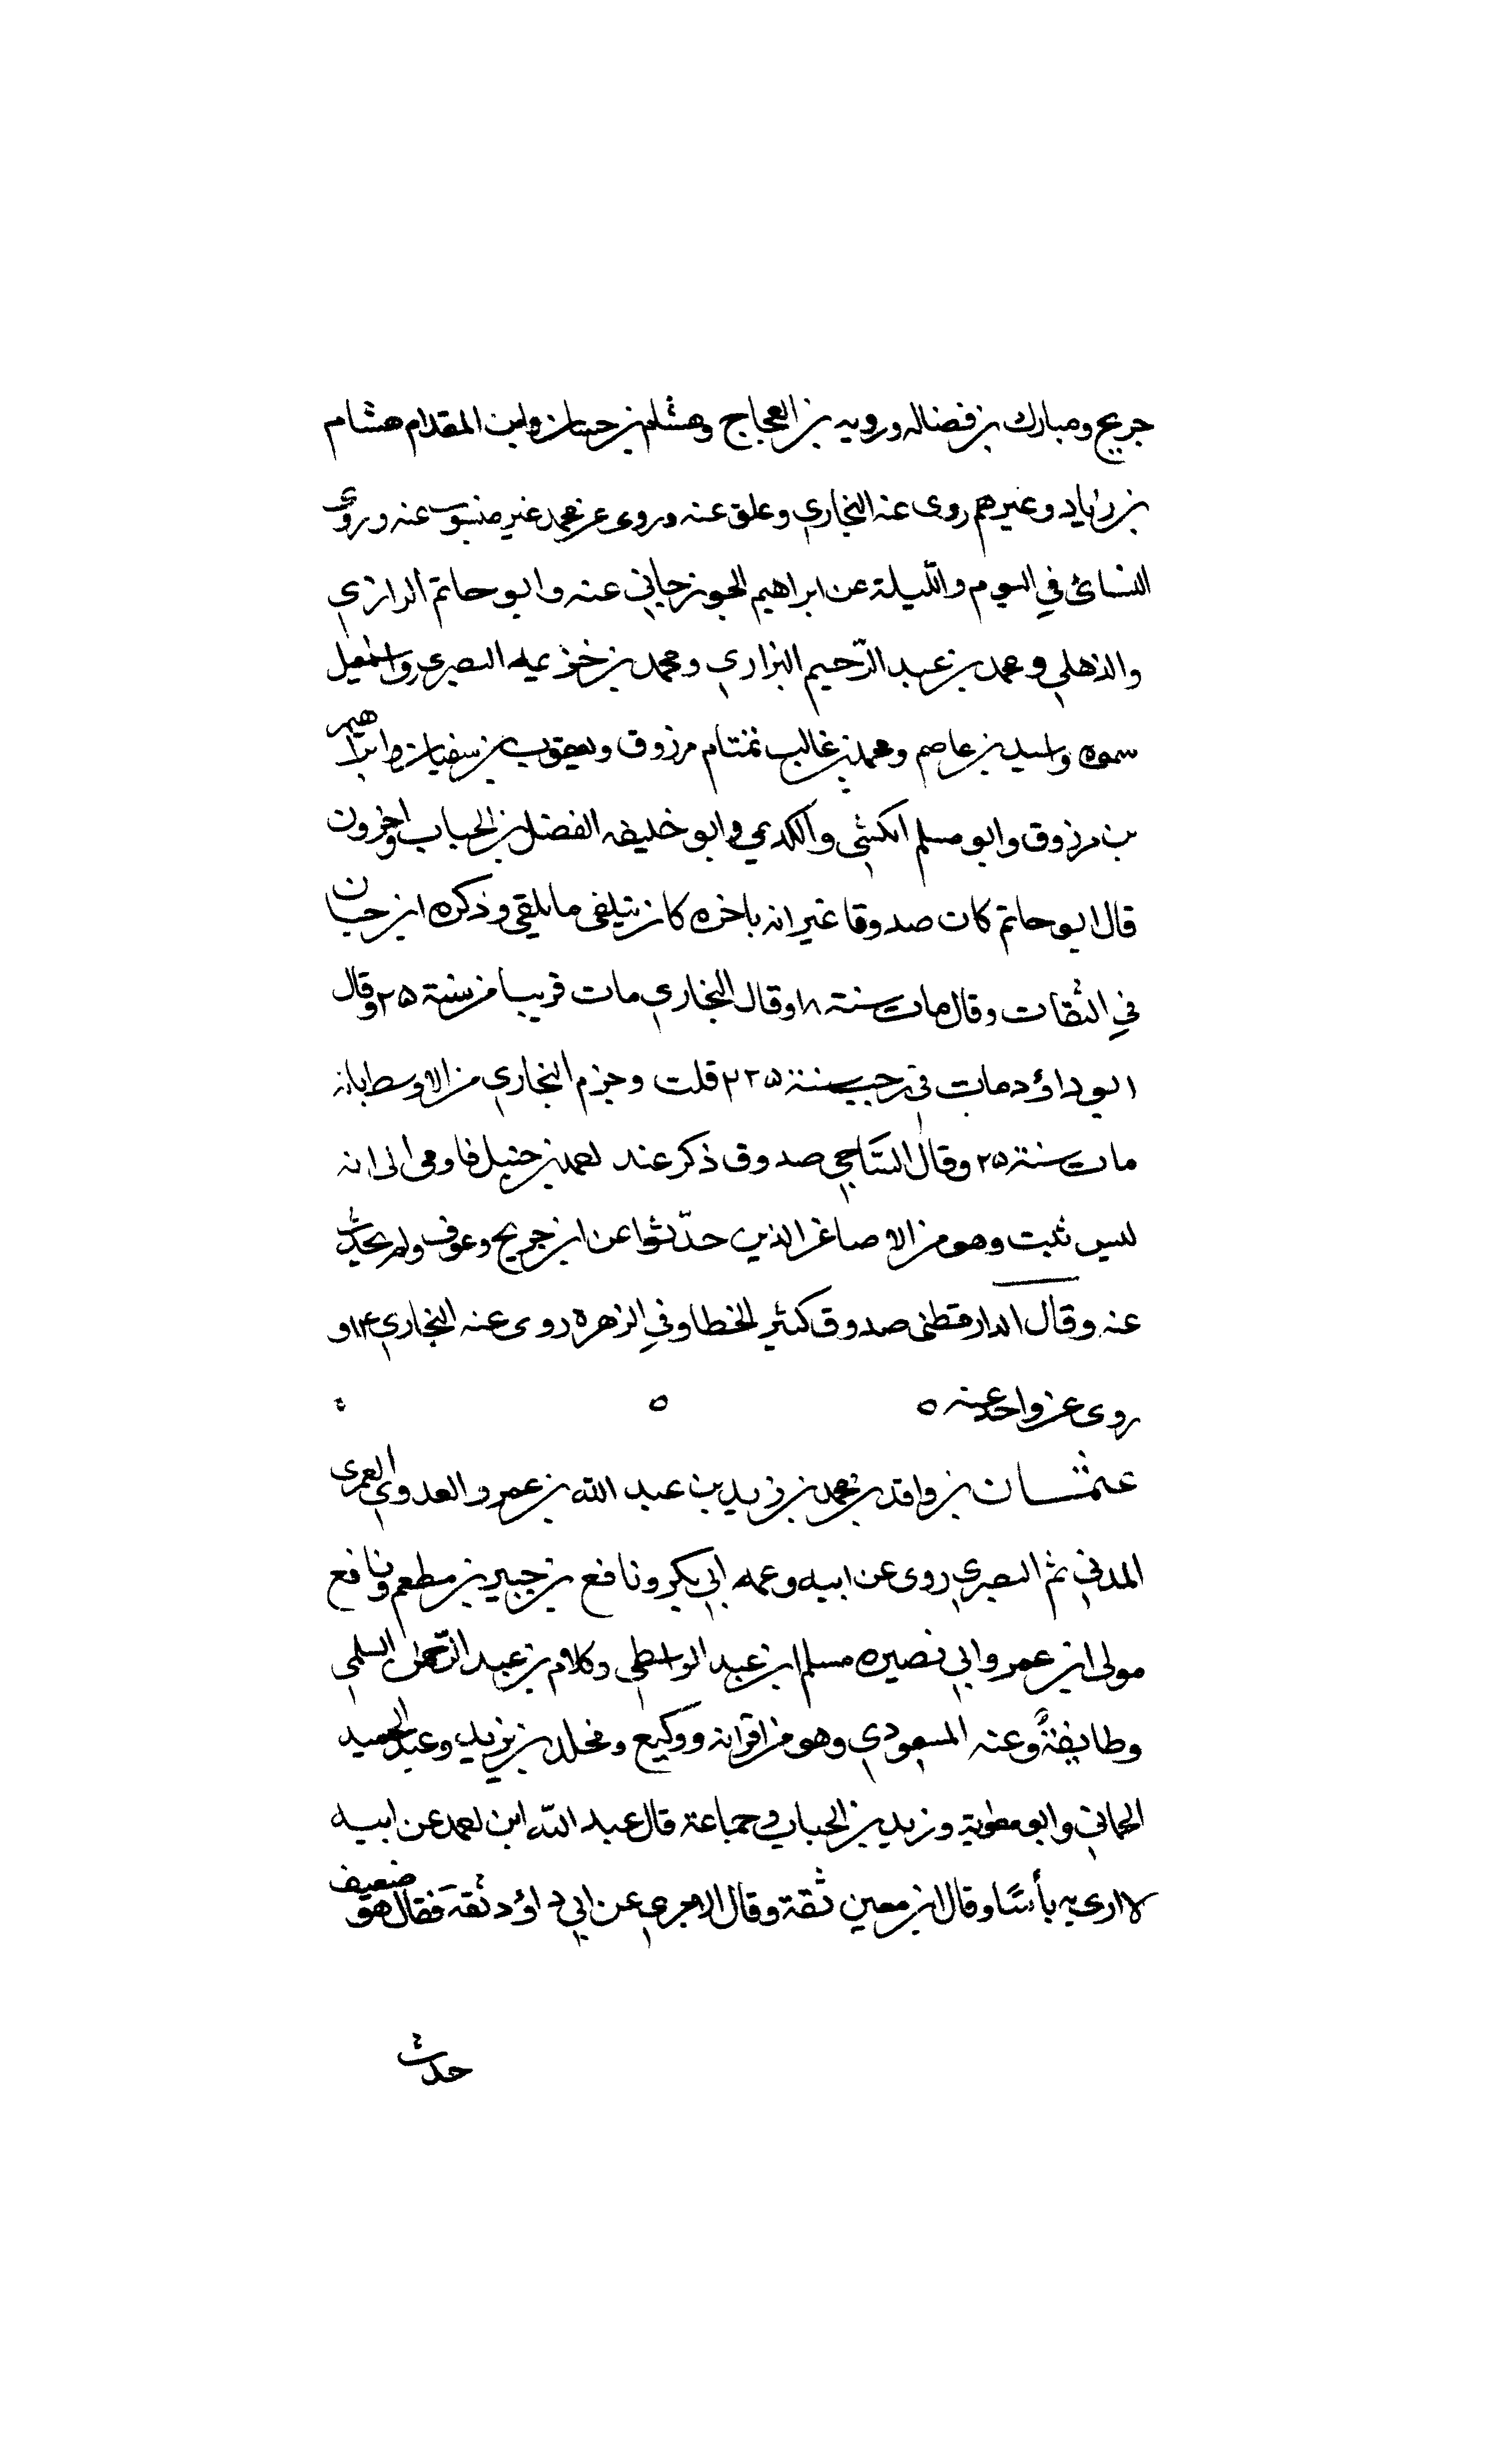 جريج ومبارك بن فضاله وروبه بن العجاج وهشام بن حسان وابن المقدام هشام
بن زياد وغيرهم روى عنه البخاري وعلق عنه وروى عن محمد غير منسوب عنه وروى
النسائ في اليوم والليلة عن ابراهيم الجوزجاني عنه وابو حاتم الرازي
والذهلي ومحمد بن عبد الرّحيم البزاري ومحمد بن خزيمه البصري واسمعيل
سمويه واسيد بن عاصم ومحمد بن غالب تمتام مرزوق ويعقوب بن سفيان وابراهيم
بن مرزوق وابو مسلم الكشى والكديمي وابو خليفه الفضل بن الحباب واخرون
قال ابو حاتم كان صدوقا غير انه باخره كان يتلقى ما يلقى وذكره ابن حبان
في الثقات وقال مات سنة ١٨ وقال البخاري مات قريبا من سنة ٢٥ وقال
ابو داؤد مات في رجب سنة ٢٢٥ قلت وجزم البخاري من الاوسط بانه
مات سنة ٢٥ وقال السّاجي صدوق ذكر عند احمد بن حنبل فاومى الى انه
ليس ثبت وهو من الاصاغر الذين حدّثوا عن ابن جريج وعوف ولم يحدث
عنه وقال الدارقطنى صدوق كثير الخطا وفي الزهره روى عنه البخاري ١٤ و
روى عن واحد عنه ٥ ٥
عثمان بن واقد بن محمد بن زيد بن عبد الله بن عمر والعدوي العمرى
المدني ثم البصري روى عن ابيه وعمه ابي بكر ونافع بن جبير بن مطعم ونافع
مولى ابن عمر وابي نصيره مسلم ابن عبيد الواسطي وكلام بن عبد الرّحمن السلمي
وطايفةٌ وعنه المسعودي وهو من اقرانه ووكيع ومخلد بن يزيد وعبد الحميد
الحماني وابو معاوية وزيد بن الحباب وجماعة قال عبد اللّه ابن احمد عن ابيه
لا ارى به بأسًا وقال ابن معين ثقة وقال الاجري عن ابي داؤد ثقة فقال هو ضعيف
حدث